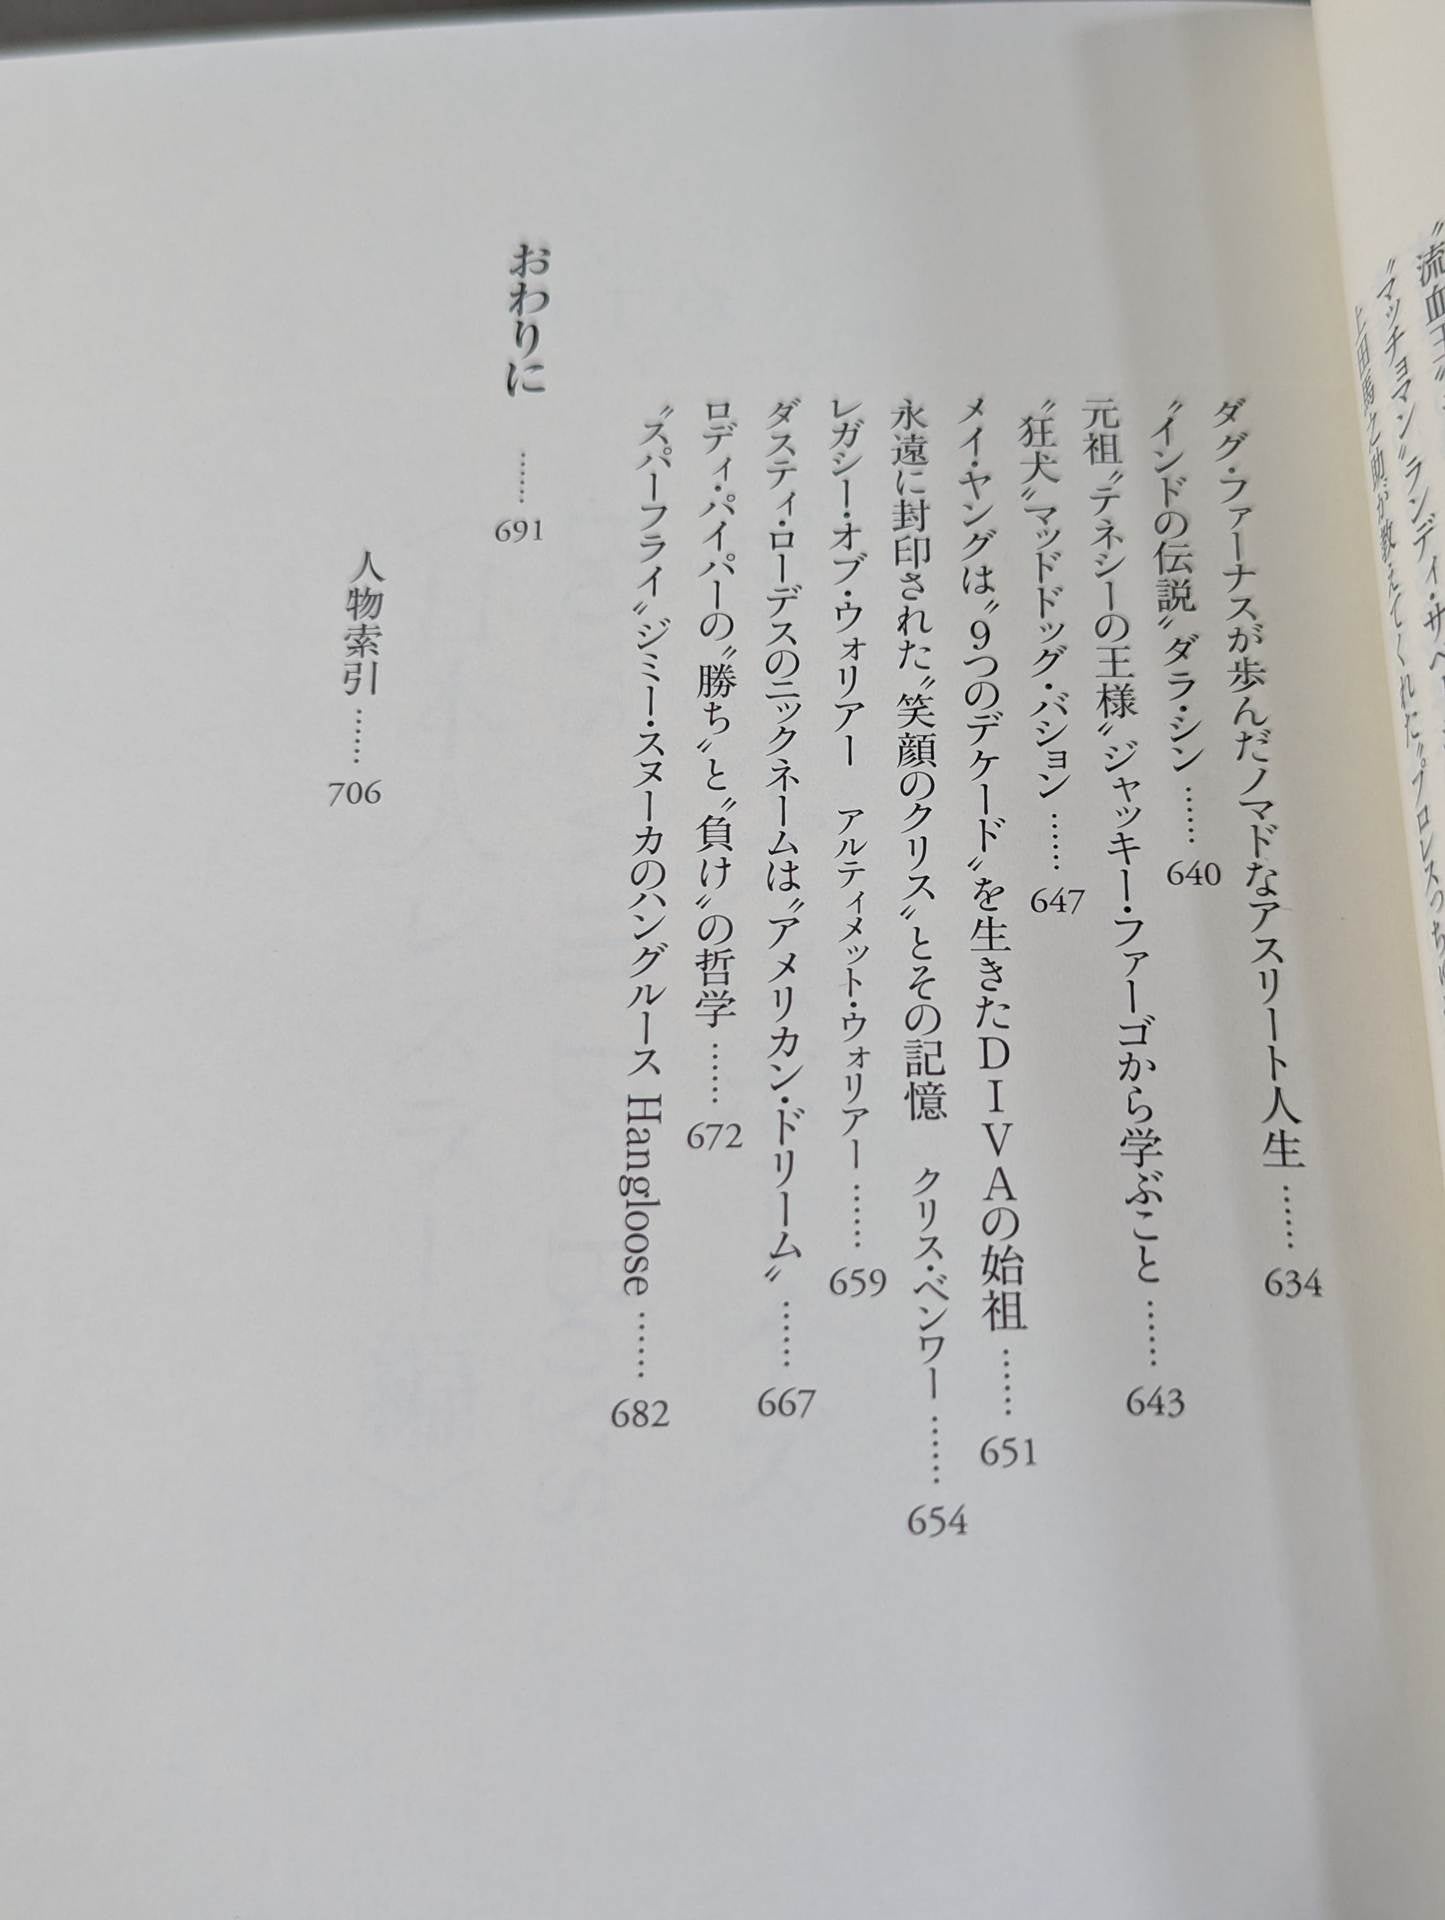 〝マッチョマン〟ランディ・サベ
上田馬之助が教えてくれた〝プロレス
ダグ・ファーナスが歩んだノマドなアスリート人生……634
〝インドの伝説〟ダラ・シン……640
元祖〝テネシーの王様〟ジャッキー・ファーゴから学ぶこと……643
〝狂犬〟マッドドッグ・バション……647
メイ・ヤングは〝9つのデケード〟を生きたDIVAの始祖……651
永遠に封印された〝笑顔のクリス〟とその記憶　クリス・ベンワー……654
レガシー・オブ・ウォリアー　アルティメット・ウォリアー……659
ダスティ・ローデスのニックネームは〝アメリカン・ドリーム〟……667
ロディ・パイパーの〝勝ち〟と〝負け〟の哲学……672
〝スパーフライ〟ジミー・スヌーカのハングルース Hangloose……682
おわりに……691
人物索引……706